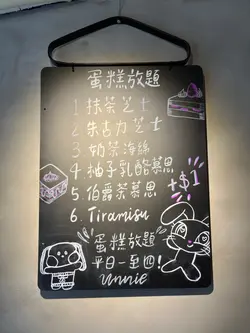 蛋糕放題
1 抹茶芝士
2 朱古力芝士
3 奶茶海綿
4 柚子乳酪慕思
5 伯爵茶慕思
6. Tiramisu
+$1
蛋糕放題
平日一至四!
Unnie